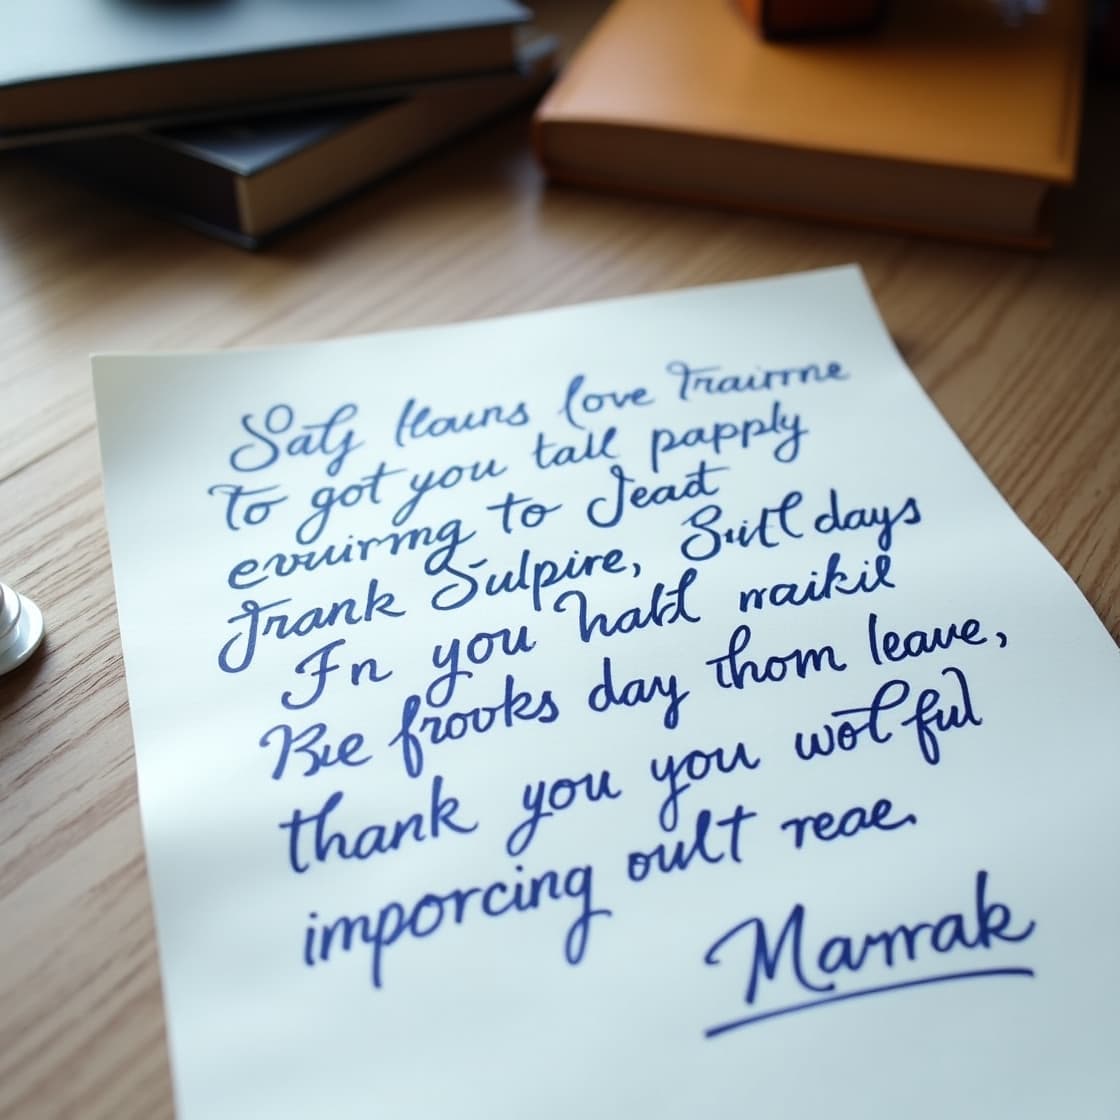 Saty flauns love Trairme
to got you tall papply
evuirmg to Jeadt
Frank Sulpire, Suitl days
Fn you habl raikil
Bue frooks day thom leave,
thank you you wotful
imporcing oult reae.
Marrak